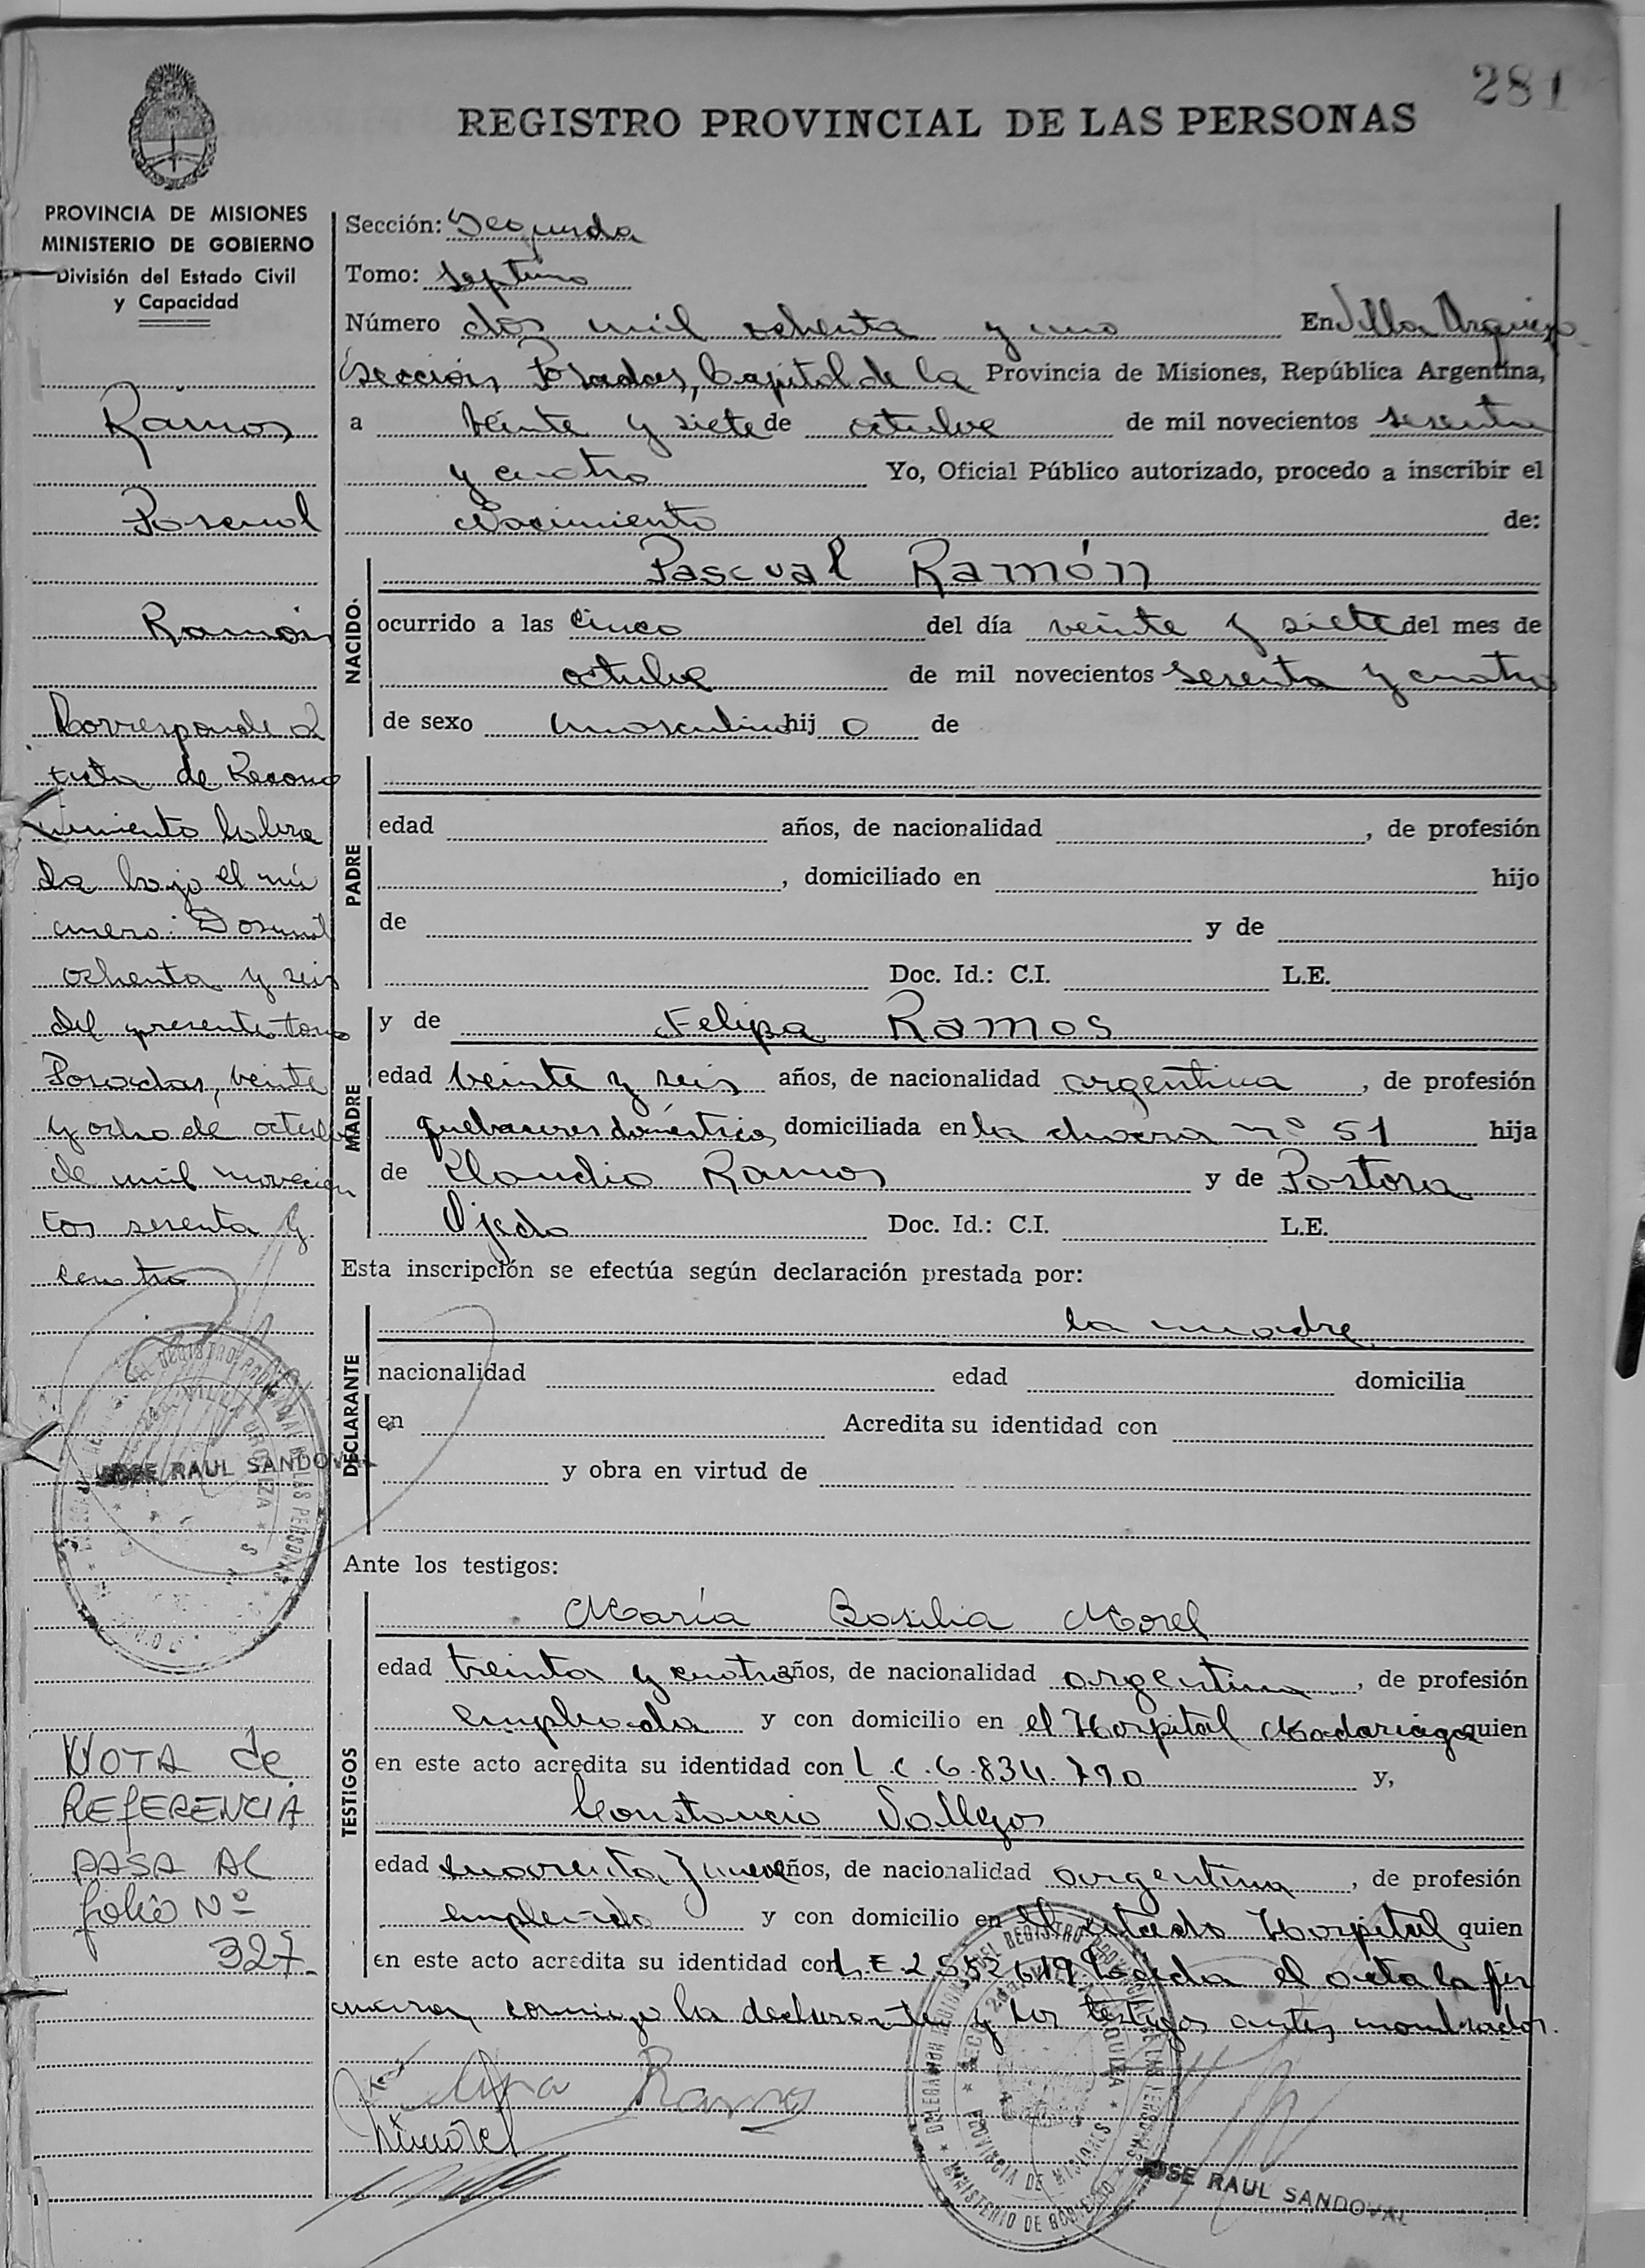 281
REGISTRO PROVINCIAL DE LAS PERSONAS
PROVINCIA DE MISIONES
MINISTERIO DE GOBIERNO
División del Estado Civil
y Capacidad
Sección: Segunda
Tomo: Septimo
Número dos mil ochenta y uno En Villa Urquiza
Sección, Posadas, Capital de la Provincia de Misiones, República Argentina,
a veinte y siete de octubre de mil novecientos sesenta
y cuatro Yo, Oficial Público autorizado, procedo a inscribir el
Nacimiento de:
NACIDO.
Pascual Ramón
ocurrido a las cinco del día veinte y siete del mes de
octubre de mil novecientos sesenta y cuatro
de sexo masculino hij o de
PADRE
edad años, de nacionalidad , de profesión
, domiciliado en hijo
de y de
Doc. Id.: C.I. L.E.
MADRE
y de Felipa Ramos
edad veinte y seis años, de nacionalidad argentina , de profesión
quehaceres domésticos, domiciliada en la chacra nº 51 hija
de Claudio Ramos y de Pastora
Ojeda Doc. Id.: C.I. L.E.
Esta inscripción se efectúa según declaración prestada por:
DECLARANTE
la madre
nacionalidad edad domicilia
en Acredita su identidad con
y obra en virtud de
Ante los testigos:
TESTIGOS
María Basilia Morel
edad treinta y cuatro años, de nacionalidad argentina , de profesión
empleada y con domicilio en el Hospital Madariaga quien
en este acto acredita su identidad con L.C.6.834.790 y,
Constancio Vallejos
edad cuarenta y nueve años, de nacionalidad argentina , de profesión
empleado y con domicilio en el citado Hospital quien
en este acto acredita su identidad con L.E.2552619 Leída el acta la fir
maron conmigo la declarante y los testigos antes nombrados.
Felipa Ramos
JOSE RAUL SANDOVAL
Ramos
Pascual
Ramón
Corresponde a
acta de Recono
cimiento labra
da bajo el nú
mero: Dos mil
ochenta y seis
del presente tomo
Posadas, veinte
y ocho de octubre
de mil novecien
tos sesenta y
cuatro
JOSE RAUL SANDOVAL
NOTA de
REFERENCIA
PASA AL
folio Nº
327.
DELEGACION REGIONAL DEL REGISTRO PROVINCIAL DE LAS PERSONAS
PROVINCIA DE MISIONES
MINISTERIO DE GOBIERNO